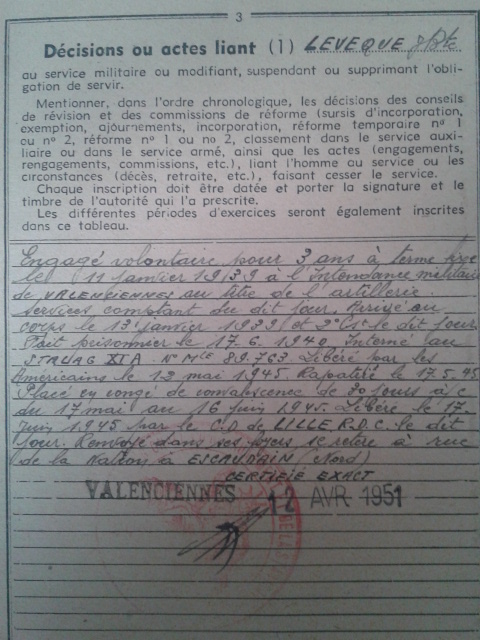 3
Décisions ou actes liant (1) LEVEQUE
au service militaire ou modifiant, suspendant ou supprimant l'obli-
gation de servir.
Mentionner, dans l'ordre chronologique, les décisions des conseils
de révision et des commissions de réforme (sursis d'incorporation,
exemption, ajournements, incorporation, réforme temporaire nº 1
ou nº 2, réforme nº 1 ou no 2, classement dans le service auxi-
liaire ou dans le service armé, ainsi que les actes (engagements,
rengagements, commissions, etc.), liant l'homme au service ou les
circonstances (décès, retraite, etc.), faisant cesser le service.
Chaque inscription doit être datée et porter la signature et le
timbre de l'autorité qui l'a prescrite.
Les différentes périodes d'exercices seront également inscrites
dans ce tableau.
Engagé volontaire pour 3 ans à terme fixe
le 11 janvier 1939 à l'Intendance militaire
de VALENCIENNES au titre de l'artillerie
services comptant du dit jour. Arrivé au
corps le 13 janvier 1939 et 2° Cl. le dit jour.
Fait prisonnier le 17.6.1940. Interné au
STALAG XI A. N° Mle 89.763. Libéré par les
Américains le 12 mai 1945. Rapatrié le 17.5.45
Placé en congé de convalescence de 30 jours à c
du 17 mai au 16 juin 1945. Libéré le 17
juin 1945 par le C.D de LILLE. R.D.C. le dit
jour. Renvoyé dans ses foyers se retire à rue
de la Nation à ESCAUDAIN (Nord)
CERTIFIÉ EXACT
VALENCIENNES 12 AVR 1951